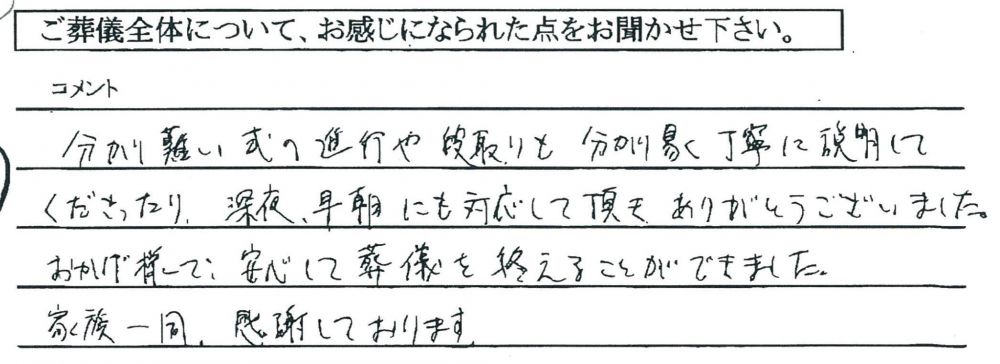 ご葬儀全体について、お感じになられた点をお聞かせ下さい。
コメント
分かり難い式の進行や段取りも分かり易く丁寧に説明して
くださったり、深夜、早朝にも対応して頂き、ありがとうございました。
おかげ様で、安心して葬儀を終えることができました。
家族一同、感謝しております。